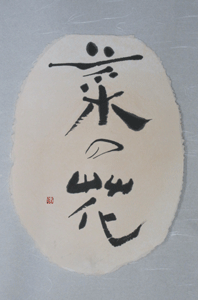 菜の花